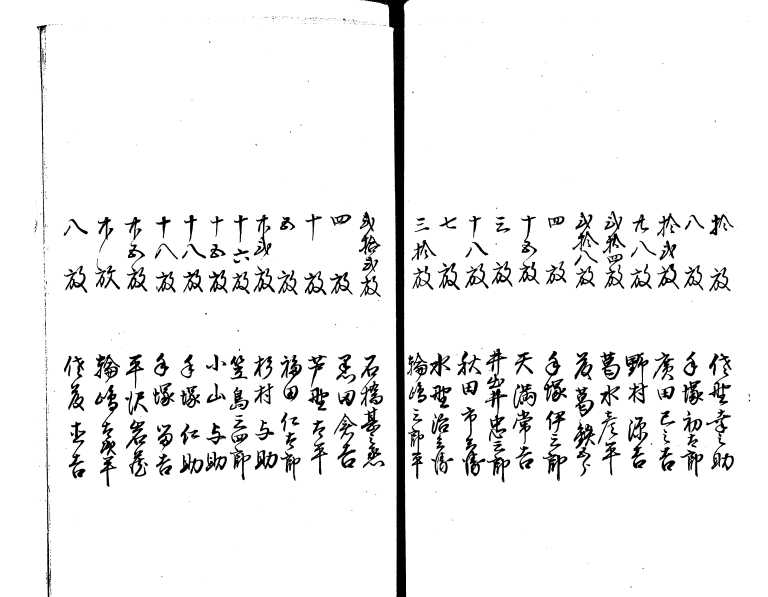 拾放 佐野幸之助
八放 手塚初太郎
拾弐放 廣田巳之吉
廿八放 野村源吉
弐拾四放 葛水彦平
弐拾八放
四放 手塚伊三郎
十五放 天満常吉
三放 忠三郎
十八放 秋田市兵衛
七放 水野治兵衛
三拾放 輪嶋三郎平
弐拾弐放 石橋甚之丞
四放 黒田倉吉
十放 芦野太平
五放 福田仁太郎
廿弐放 杉村与助
十六放 笠島三四郎
十五放 小山与助
十八放 手塚仁助
十八放 手塚留吉
廿五放 平沢岩蔵
廿放 輪嶋太平
八放 佐藤吉